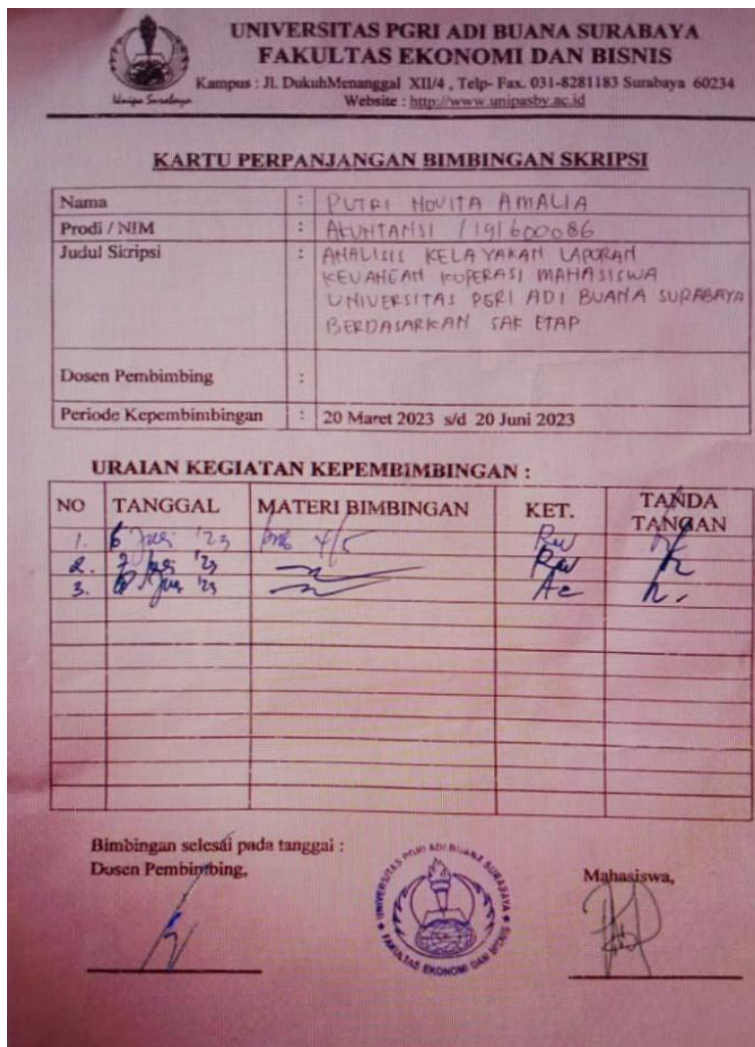 UNIVERSITAS PGRI ADI BUANA SURABAYA
FAKULTAS EKONOMI DAN BISNIS
Kampus : Jl. DukuhMenanggal XII/4 , Telp- Fax. 031-8281183 Surabaya 60234
Website : http://www.unipasby.ac.id
Unipa Surabaya
KARTU PERPANJANGAN BIMBINGAN SKRIPSI
Nama : PUTRI NOVITA AMALIA
Prodi / NIM : AKUNTANSI / 191600086
Judul Skripsi : ANALISIS KELAYAKAN LAPORAN
KEUANGAN KOPERASI MAHASISWA
UNIVERSITAS PGRI ADI BUANA SURABAYA
BERDASARKAN SAK ETAP
Dosen Pembimbing :
Periode Kepembimbingan : 20 Maret 2023 s/d 20 Juni 2023
URAIAN KEGIATAN KEPEMBIMBINGAN :
NO TANGGAL MATERI BIMBINGAN KET. TANDA TANGAN
1. 6 '23 4/5
2. 7 '23
3. '23
Bimbingan selesai pada tanggai :
Dosen Pembimbing,
Mahasiswa,
UNIVERSITAS PGRI ADI BUANA SURABAYA
FAKULTAS EKONOMI DAN BISNIS